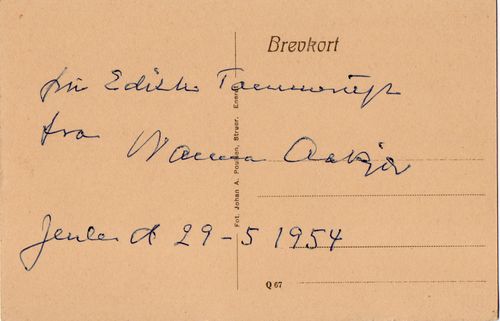 Brevkort
fru Edith
fra
Nanna Aakjær
Jenle d 29-5 1954
Fot. Johan A. Poulsen, Struer. Eneret
Q 67